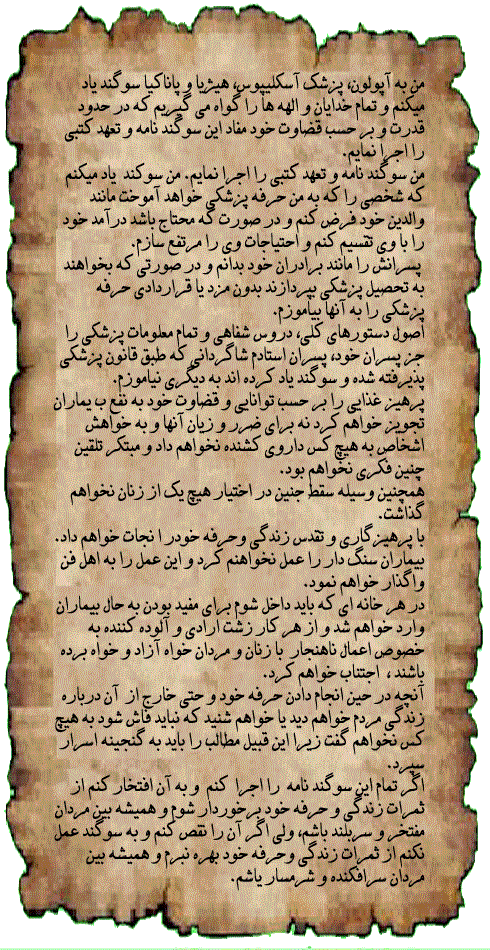 من به آپولون، پزشک آسکلیپیوس، هیژیا و پاناکیا سوگند یاد
میکنم و تمام خدایان و الهه ها را گواه می گیریم که در حدود
قدرت و بر حسب قضاوت خود مفاد این سوگند نامه و تعهد کتبی
را اجرا نمایم.
من سوگند نامه و تعهد کتبی را اجرا نمایم. من سوکند یاد میکنم
که شخصی را که به من حرفه پزشکی خواهد آموخت مانند
والدین خود فرض کنم و در صورت که محتاج باشد درآمد خود
را با وی تقسیم کنم و احتیاجات وی را مرتفع سازم.
پسرانش را مانند برادران خود بدانم و در صورتی که بخواهند
به تحصیل پزشکی بپردازند بدون مزد یا قراردادی حرفه
پزشکی را به آنها بیاموزم.
اصول دستورهای کلی، دروس شفاهی و تمام معلومات پزشکی را
جز پسران خود، پسران استادم شاگردانی که طبق قانون پزشکی
پذیرفته شده و سوگند یاد کرده اند به دیگری نیاموزم.
پرهیز غذایی را بر حسب توانایی و قضاوت خود به نفع ب یماران
تجویز خواهم کرد نه برای ضرر و زیان آنها و به خواهش
اشخاص به هیچ کس داروی کشنده نخواهم داد و مبتکر تلقین
چنین فکری نخواهم بود.
همچنین وسیله سقط جنین در اختیار هیچ یک از زنان نخواهم
گذاشت.
با پرهیزگاری و تقدس زندگی وحرفه خودر ا نجات خواهم داد.
بیماران سنگ دار را عمل نخواهنم کرد و این عمل را به اهل فن
واگذار خواهم نمود.
در هر خانه ای که باید داخل شوم برای مفید بودن به حال بیماران
وارد خواهم شد و از هر کار زشت ارادی و آلوده کننده به
خصوص اعمال ناهنجار با زنان و مردان خواه آزاد و خواه برده
باشند ، اجتناب خواهم کرد.
آنچه در حین انجام دادن حرفه خود و حتی خارج از آن درباره
زندگی مردم خواهم دید یا خواهم شنید که نباید فاش شود به هیچ
کس نخواهم گفت زیرا این قبیل مطالب را باید به گنجینه اسرار
سپرد.
اگر تمام این سوگند نامه را اجرا کنم و به آن افتخار کنم از
ثمرات زندگی و حرفه خود برخوردار شوم و همیشه بین مردان
مفتخر و سربلند باشم، ولی اگر آن را نقض کنم و به سوگند عمل
نکنم از ثمرات زندگی وحرفه خود بهره نبرم و همیشه بین
مردان سرافکنده و شرمسار باشم.